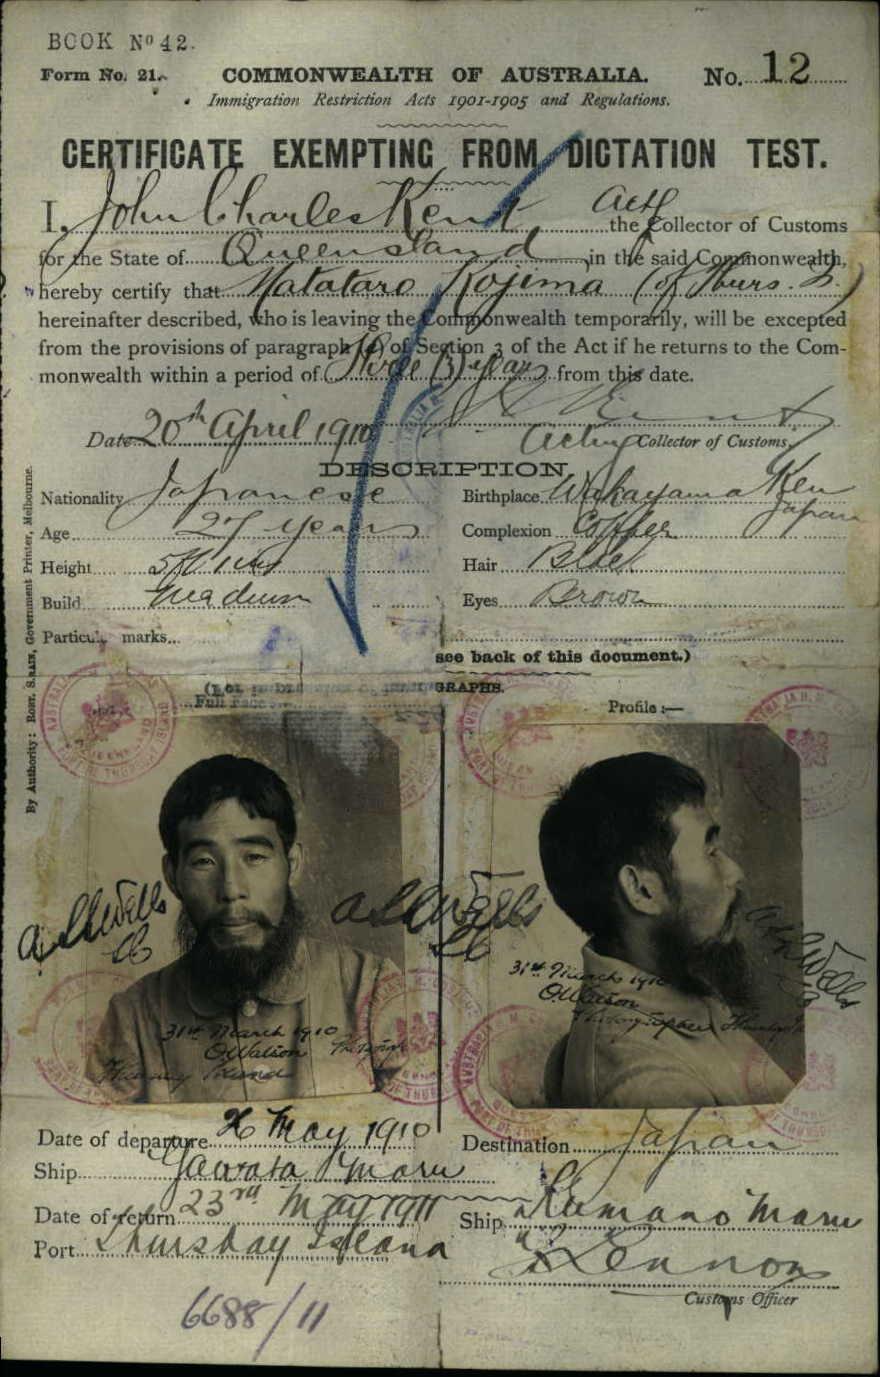 BOOK Nº 42.
Form No. 21. COMMONWEALTH OF AUSTRALIA. No. 12
Immigration Restriction Acts 1901-1905 and Regulations.
CERTIFICATE EXEMPTING FROM DICTATION TEST.
I, John Charles Kent Actg the Collector of Customs
for the State of Queensland in the said Commonwealth,
hereby certify that Matataro Kojima (of Thurs. Is.)
hereinafter described, who is leaving the Commonwealth temporarily, will be excepted
from the provisions of paragraph (a) of Section 3 of the Act if he returns to the Com-
monwealth within a period of Three (3) years from this date.
Date 20th April 1910
Acting Collector of Customs.
DESCRIPTION.
Nationality Japanese Birthplace Wakayama Ken
Japan
Age 27 years Complexion Copper
Height 5ft 1 ins Hair Black
Build Medium Eyes Brown
Particular marks
see back of this document.)
GRAPHS.
Full Face Profile:—
By Authority: ROBT. S. BRAIN, Government Printer, Melbourne.
31st March 1910
O.Watson
Thursday Island
31st March 1910
O.Watson
Date of departure 26 May 1910 Destination Japan
Ship Yawata Maru
Date of return 23rd May 1911 Ship Kumano Maru
Port Thursday Island
Customs Officer
6688/11